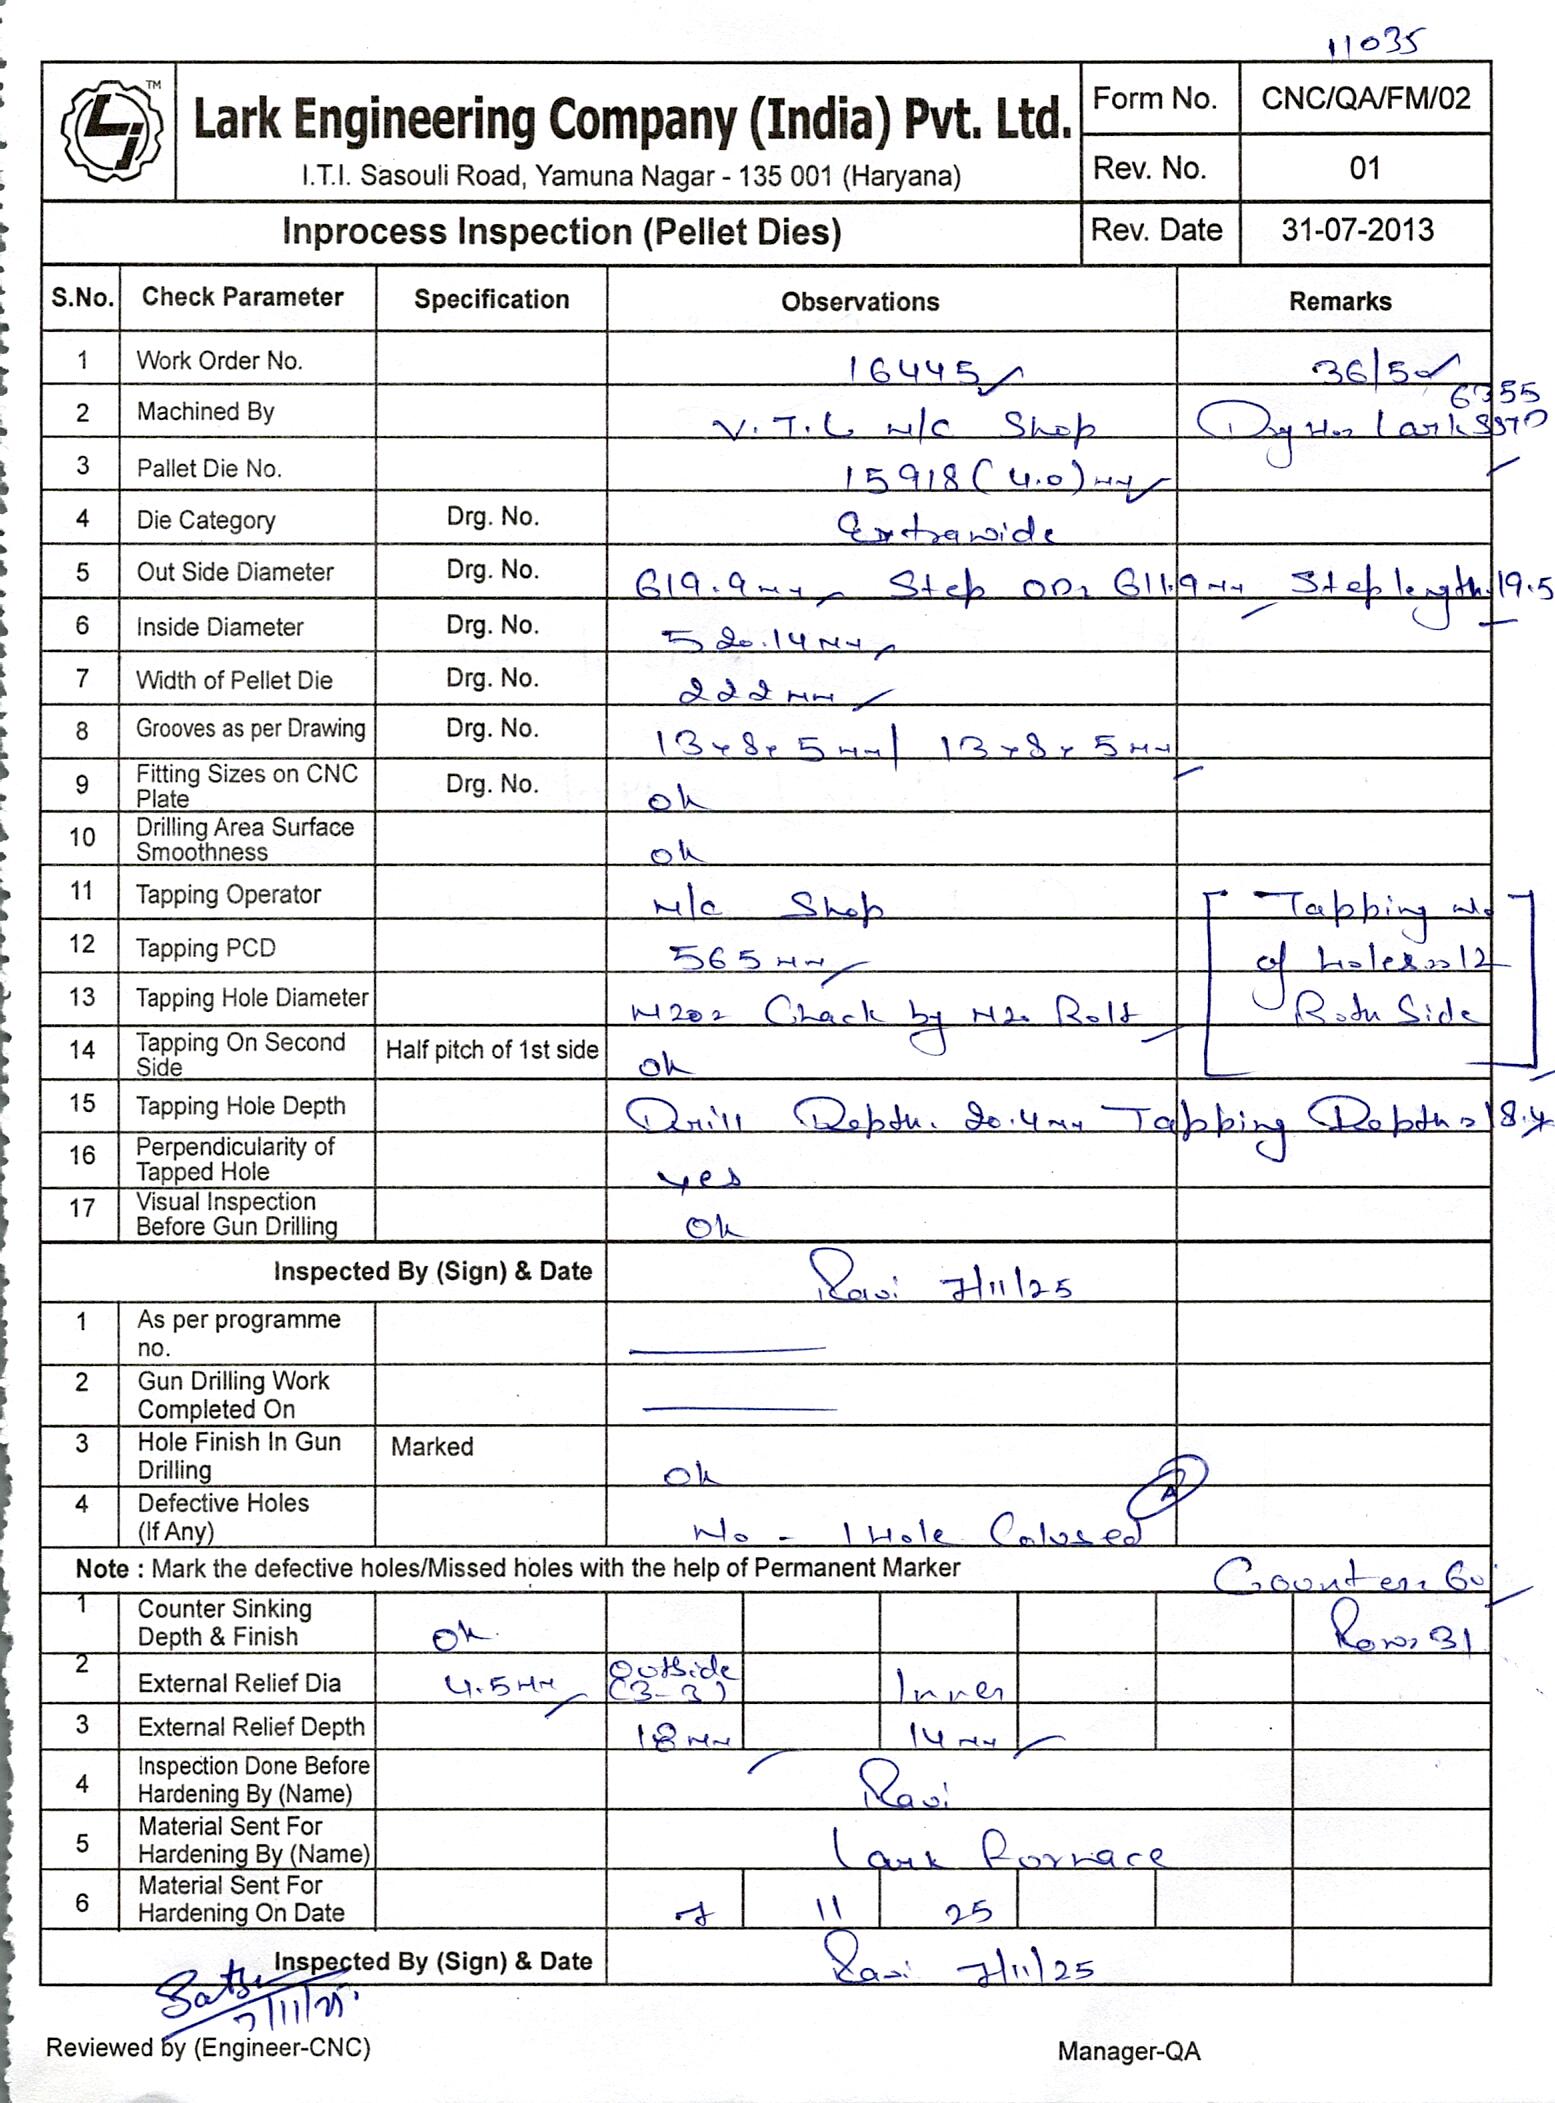 11035
TM
Lark Engineering Company (India) Pvt. Ltd.
I.T.I. Sasouli Road, Yamuna Nagar - 135 001 (Haryana)
Form No. CNC/QA/FM/02
Rev. No. 01
Inprocess Inspection (Pellet Dies) Rev. Date 31-07-2013
S.No. Check Parameter Specification Observations Remarks
1 Work Order No. 16445 36/5
2 Machined By V.T.L M/C Shop Drg No Lark 6355
3 Pallet Die No. 15918 (4.0) mm
4 Die Category Drg. No. Extrawide
5 Out Side Diameter Drg. No. 619.9mm Step OD= 611.9mm Step length. 19.5
6 Inside Diameter Drg. No. 520.14mm
7 Width of Pellet Die Drg. No. 222mm
8 Grooves as per Drawing Drg. No. 13x8x5mm| 13x8x5mm
9 Fitting Sizes on CNC Plate Drg. No. ok
10 Drilling Area Surface Smoothness ok
11 Tapping Operator M/C Shop Tapping No
12 Tapping PCD 565mm of holes=12
13 Tapping Hole Diameter M20= Chack by M20 Bolt Both Side
14 Tapping On Second Side Half pitch of 1st side ok
15 Tapping Hole Depth Drill Depth. 20.4mm Tapping Depth= 18.4
16 Perpendicularity of Tapped Hole yes
17 Visual Inspection Before Gun Drilling ok
Inspected By (Sign) & Date Ravi 7/11/25
1 As per programme no.
2 Gun Drilling Work Completed On
3 Hole Finish In Gun Drilling Marked ok
4 Defective Holes (If Any) No - 1 Hole Colused A
Note : Mark the defective holes/Missed holes with the help of Permanent Marker Counter= 60°
1 Counter Sinking Depth & Finish ok Row= 31
2 External Relief Dia 4.5mm Outside (3-3) Inner
3 External Relief Depth 18mm 14mm
4 Inspection Done Before Hardening By (Name) Ravi
5 Material Sent For Hardening By (Name) Lark Fornace
6 Material Sent For Hardening On Date 7 11 25
Inspected By (Sign) & Date Ravi 7/11/25
7/11/25
Reviewed by (Engineer-CNC) Manager-QA